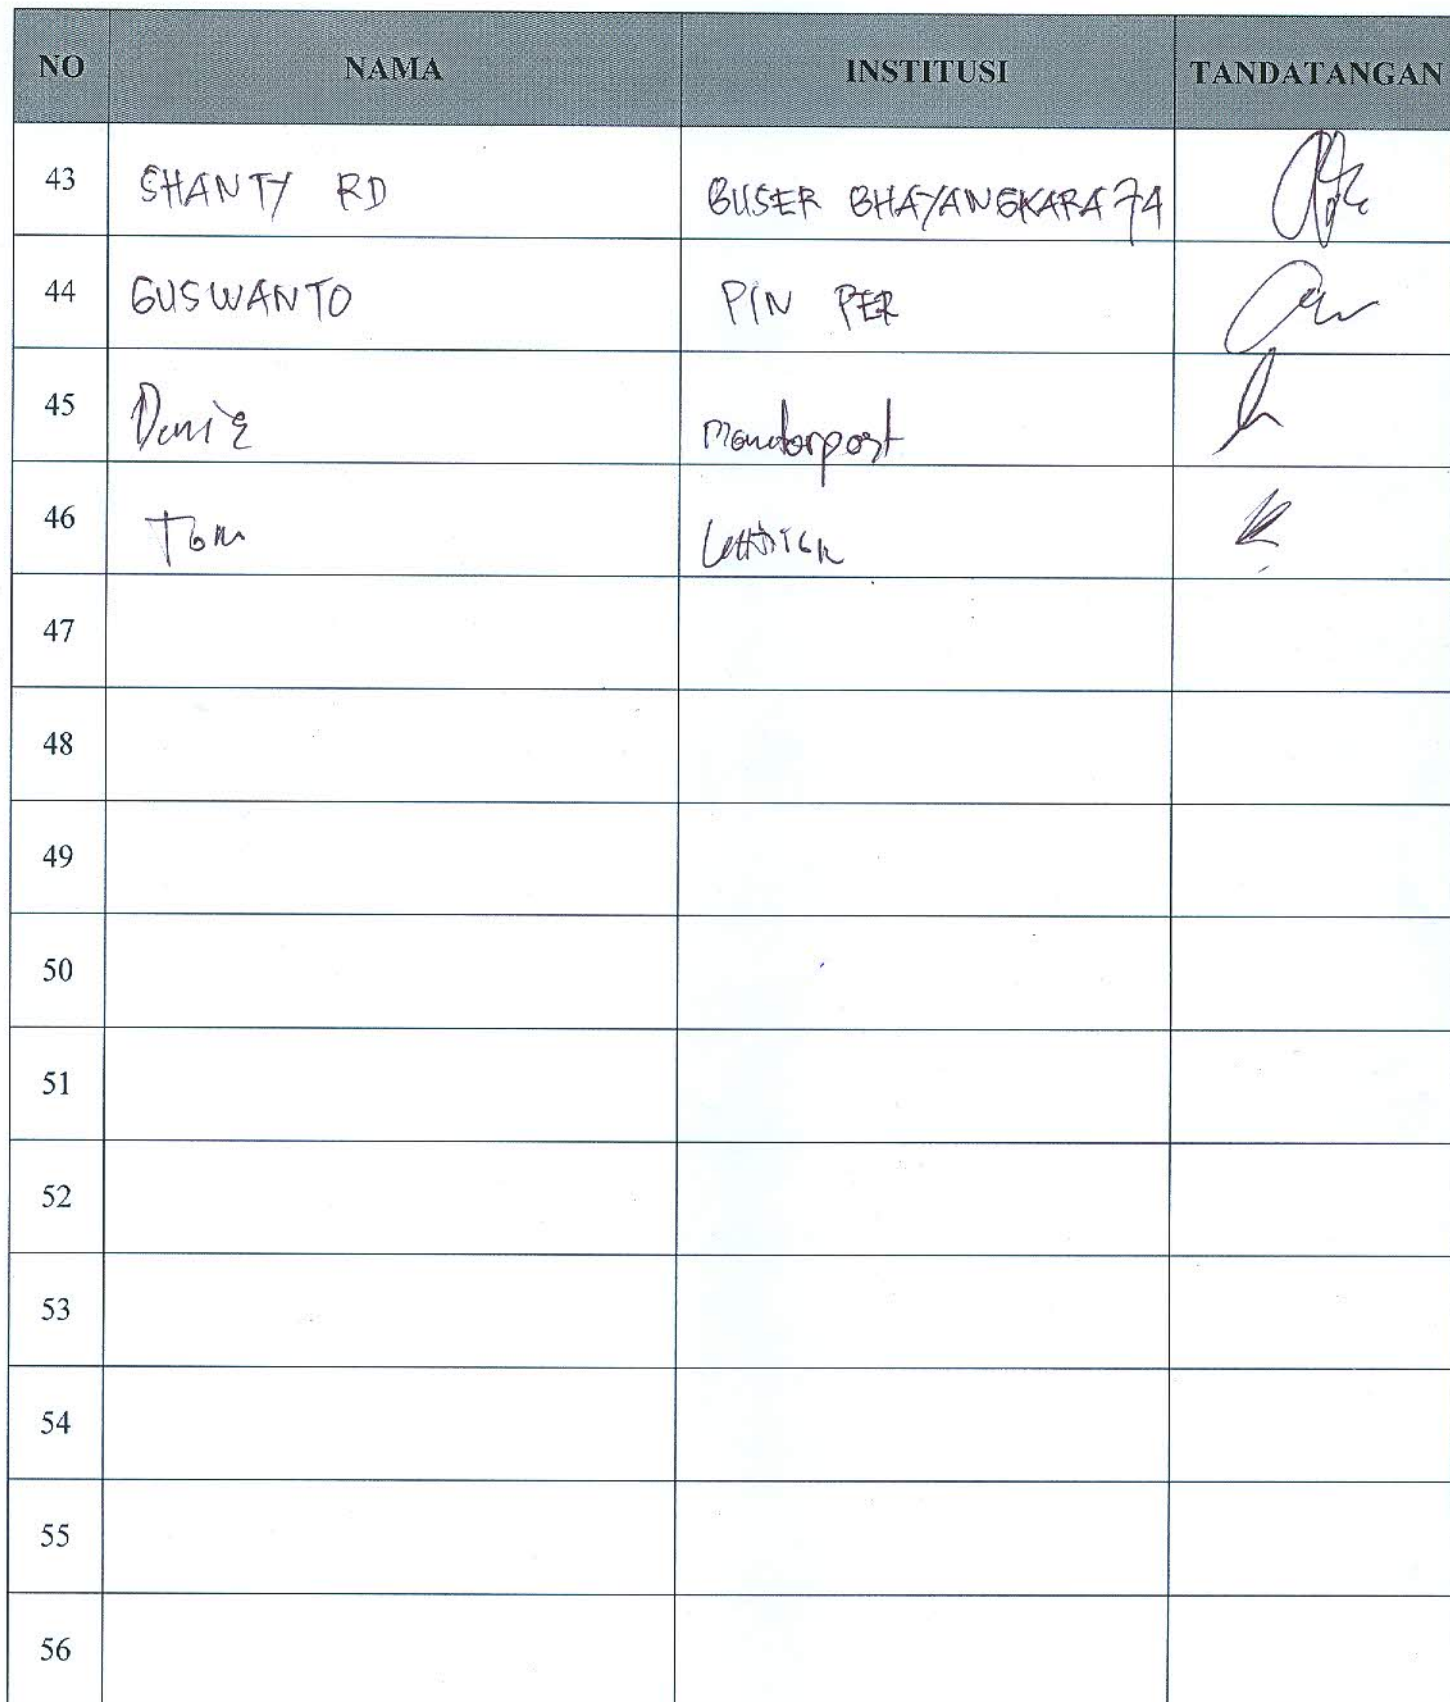 NO NAMA INSTITUSI TANDATANGAN
43 SHANTY RD BUSER BHAYANGKARA 74
44 GUSWANTO PIN PER
45
46 Tom
47
48
49
50
51
52
53
54
55
56